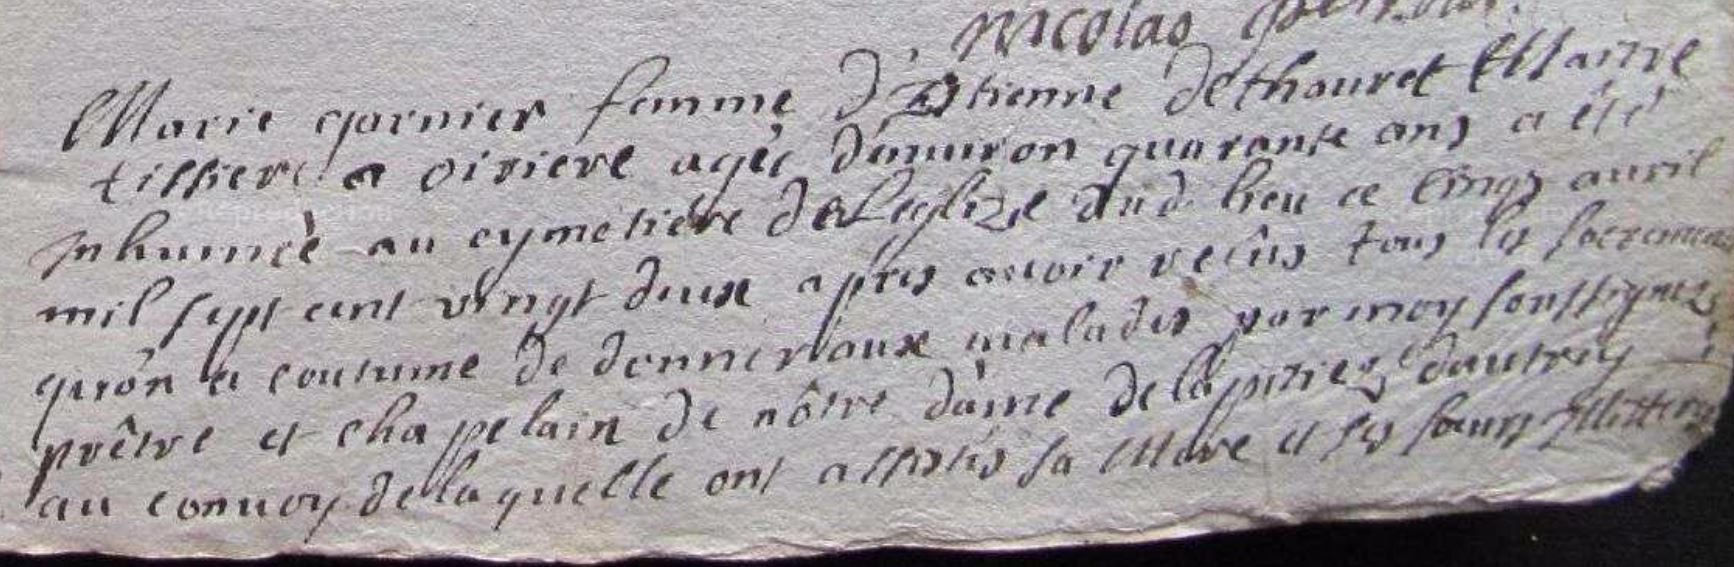 Nicolas
Marie garnier femme d'Estienne dethouret Maitre
tissier a oiriere agée d'enuiron quarante ans a été
inhumeè au cymetiére de Leglize dud. lieu ce cinq auril
mil sept cent vingt deux apres auoir recûs tous les sacremens
qu'on a coutume de donner aux malades par moy soussignez
prêtre et chapelain de nôtre dame de la pitiez d'autrey
au conuoy de laquelle ont assistés sa Mere et ses sœurs